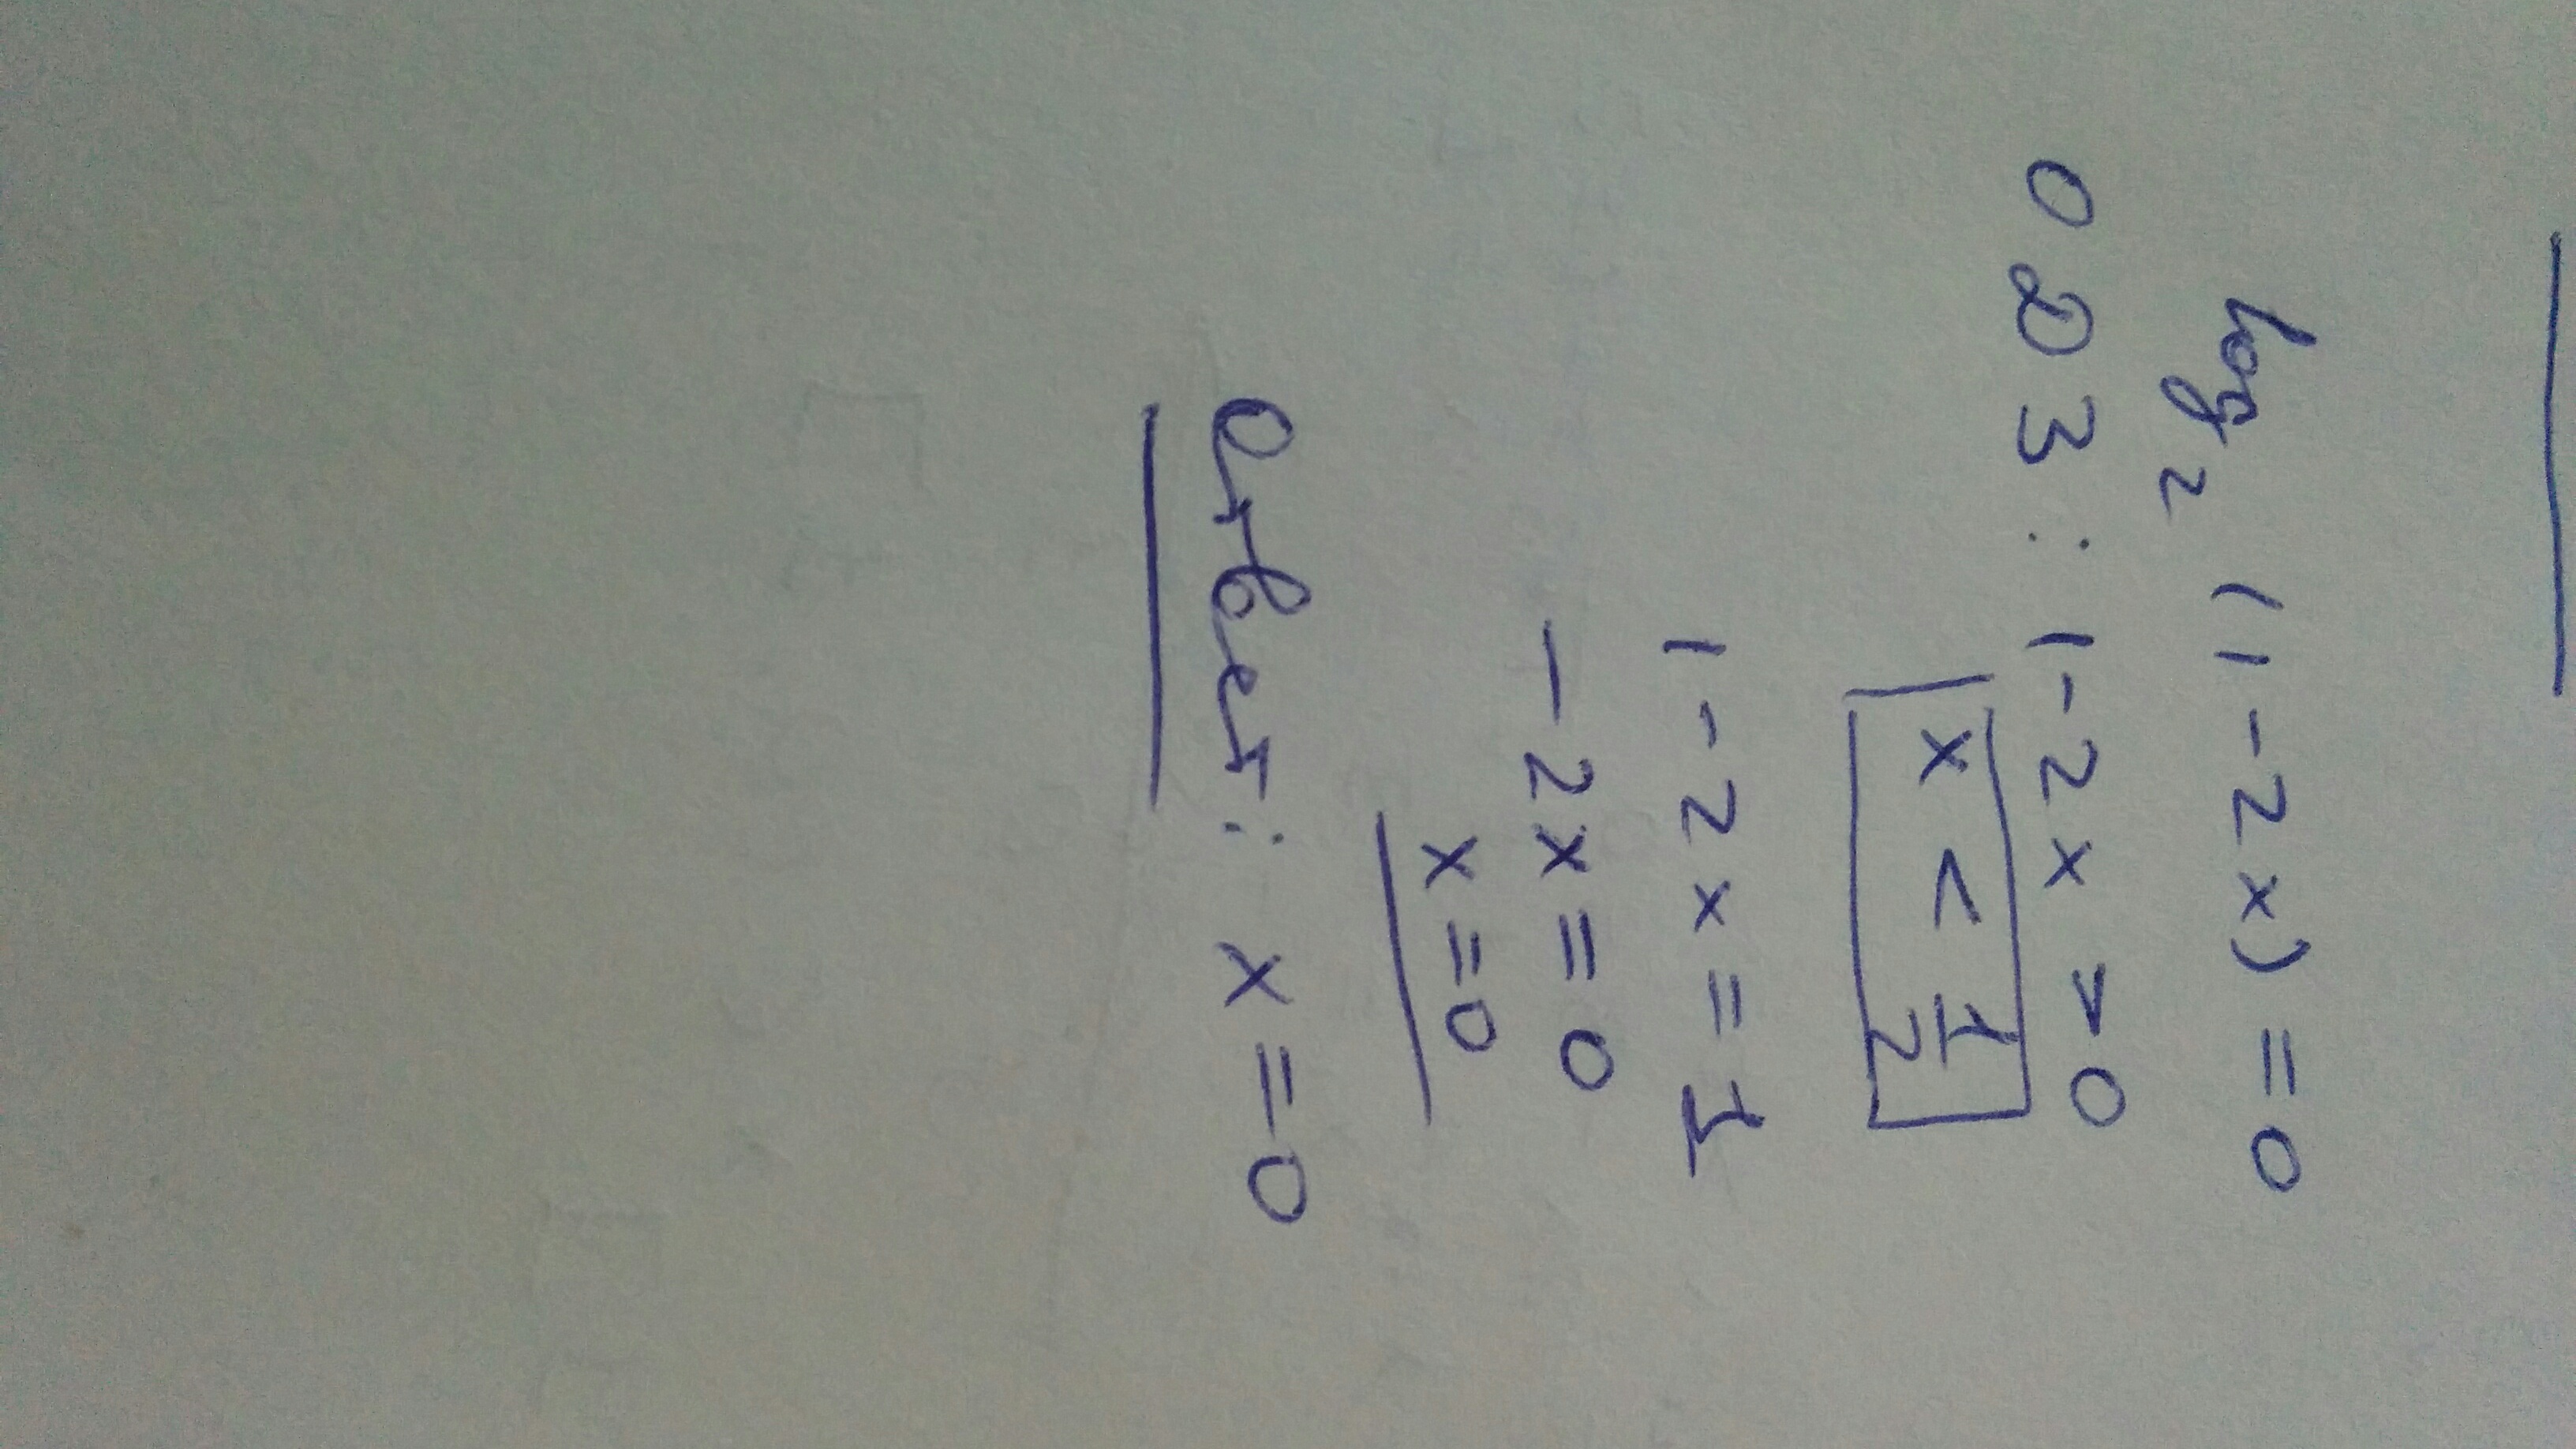 log₂ (1 - 2x) = 0
ОДЗ : 1 - 2x > 0
x < 1/2
1 - 2x = 1
- 2x = 0
x = 0
Ответ: x = 0